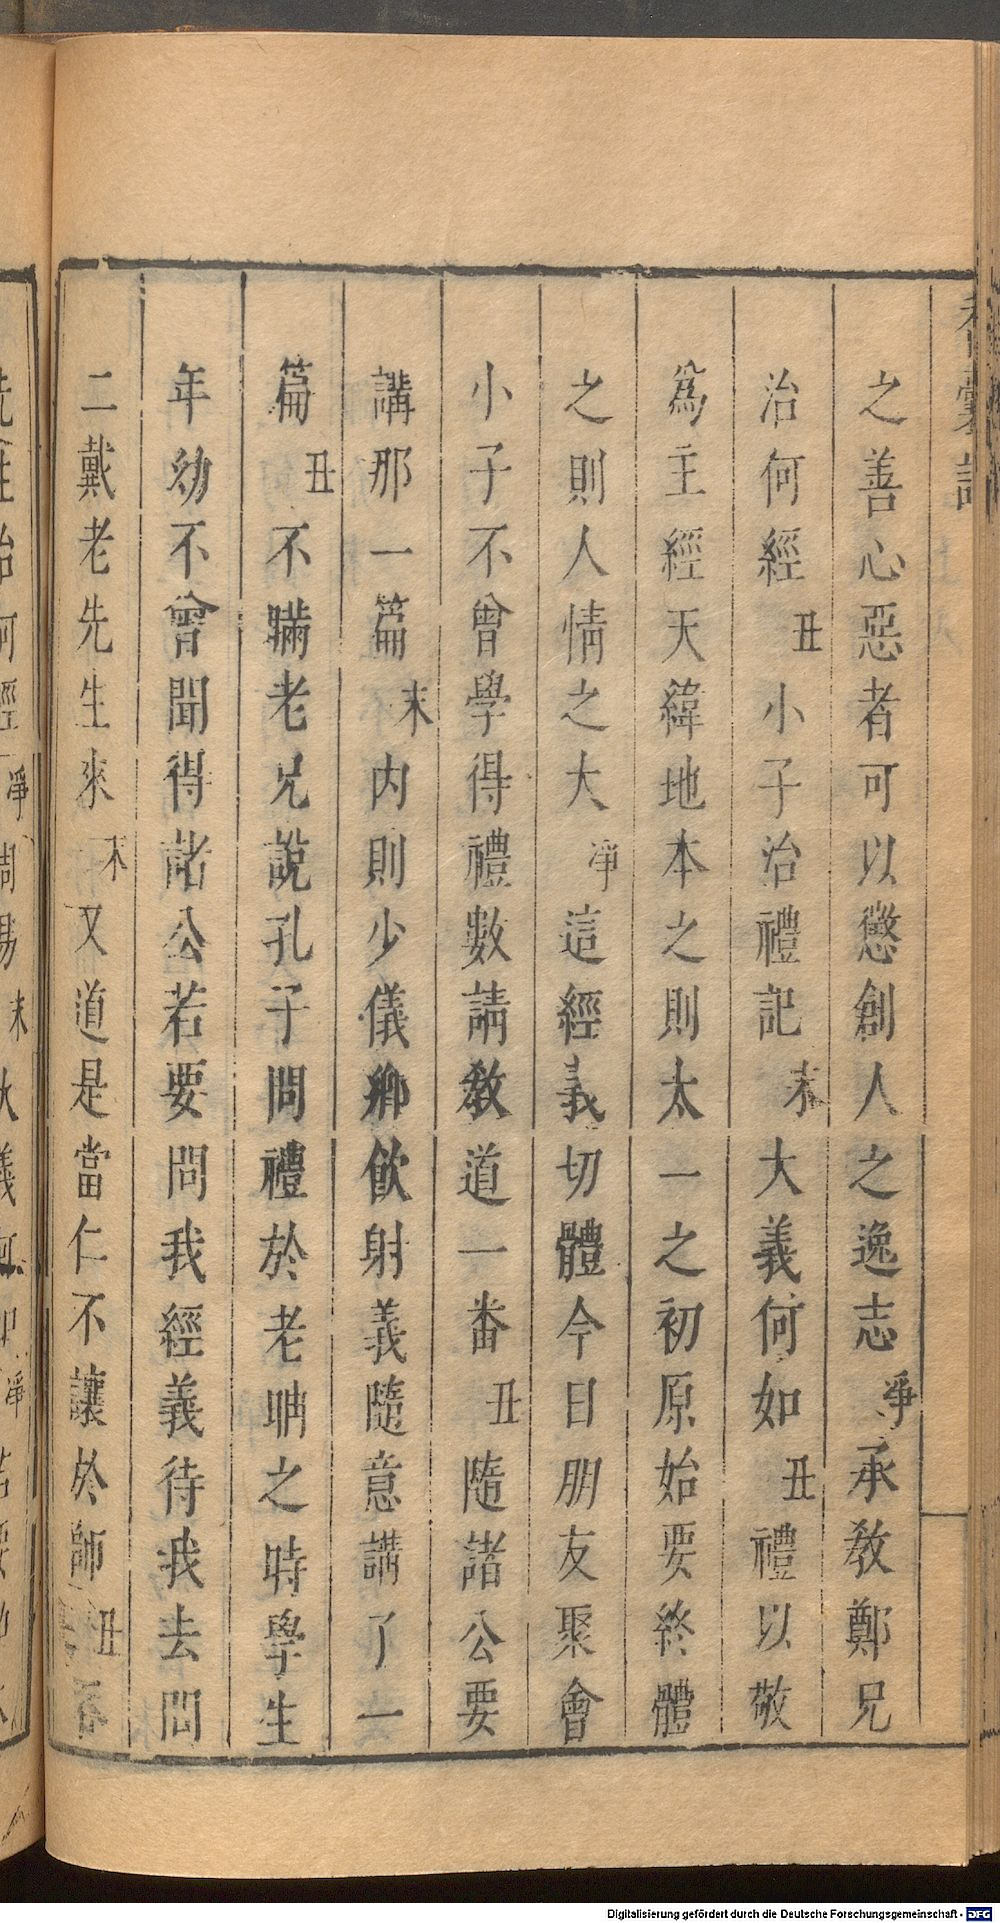 香囊記
之善心惡者可以懲創人之逸志淨承教鄭兄
治何經丑小子治禮記末大義何如丑禮以敬
為主經天緯地本之則太一之初原始要終體
之則人情之大淨這經義切體今日朋友聚會
小子不曾學得禮數請教道一番丑隨諸公要
講那一篇末内則少儀鄉飲射義隨意講了一
篇丑不瞞老兄說孔子問禮於老聃之時學生
年幼不曾聞得諸公若要問我經義待我去問
二戴老先生來末又道是當仁不讓於師丑
Digitalisierung gefördert durch die Deutsche Forschungsgemeinschaft - DFG